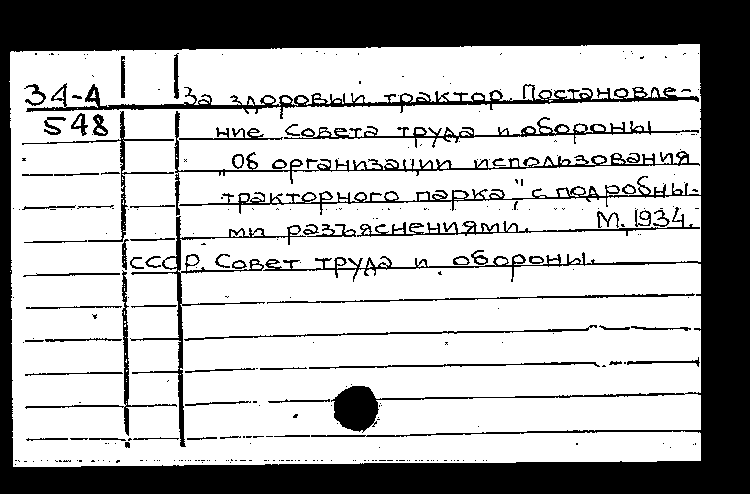 34-4 За здоровый трактор. Постановле-
548 ние Совета труда и обороны
„Об организации использования
тракторного парка", с подробны-
ми разъяснениями. М, 1934.
СССР. Совет труда и обороны.